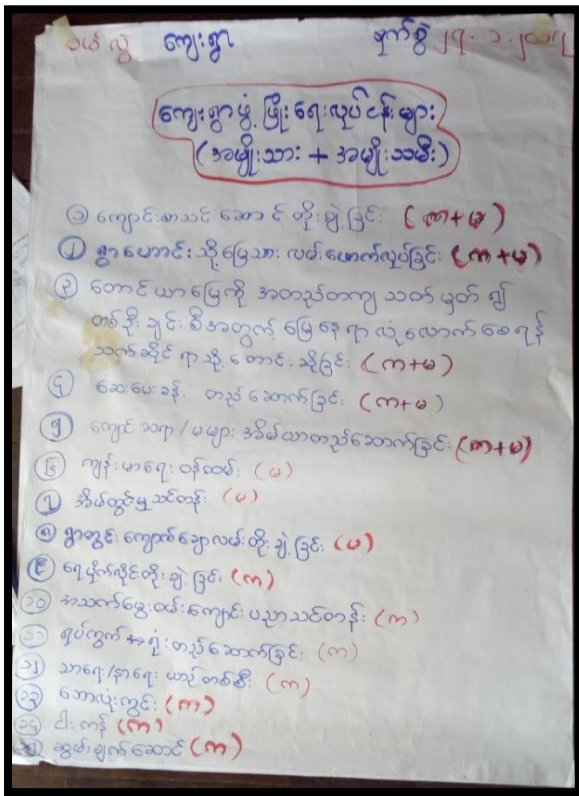 ဝယ်လွဲ ကျေးရွာ ရက်စွဲ ၂၇.၁.၂၀၁၇
ကျေးရွာဖွံ့ဖြိုးရေးလုပ်ငန်းများ
(အမျိုးသား + အမျိုးသမီး)
၁ ကျောင်းစာသင်ဆောင် တိုးချဲ့ခြင်း (ကျ+မ)
၂ ရွာဟောင်းသို့မြေသားလမ်းဖောက်လုပ်ခြင်း (ကျ+မ)
၃ တောင်ယာမြေကို အတည်တကျ သတ်မှတ်၍
တစ်ဦးချင်းစီအတွက် မြေနေရာလုံလောက်စေရန်
သက်ဆိုင်ရာသို့ တောင်းဆိုခြင်း (ကျ+မ)
၄ ဆေးပေးခန်း တည်ဆောက်ခြင်း (ကျ+မ)
၅ ကျောင်းဆရာ/မများ အိမ်ယာတည်ဆောက်ခြင်း (ကျ+မ)
၆ ကျန်းမာရေးဝန်ထမ်း (မ)
၇ အိမ်တွင်းမှုသင်တန်း (မ)
၈ ရွာတွင်းကျောက်ချောလမ်းတိုးချဲ့ခြင်း (မ)
၉ ရေပိုက်လိုင်းတိုးချဲ့ခြင်း (ကျ)
၁၀ အသက်မွေးဝမ်းကျောင်းပညာသင်တန်း (ကျ)
၁၁ ရပ်ကွက်အရုံးတည်ဆောက်ခြင်း (ကျ)
၁၂ သာရေး/နာရေး ယာဉ်တစ်စီး (ကျ)
၁၃ ဘောလုံးကွင်း (ကျ)
၁၄ ငါးကန် (ကျ)
၁၅ ဆွမ်းချက်ဆောင် (ကျ)